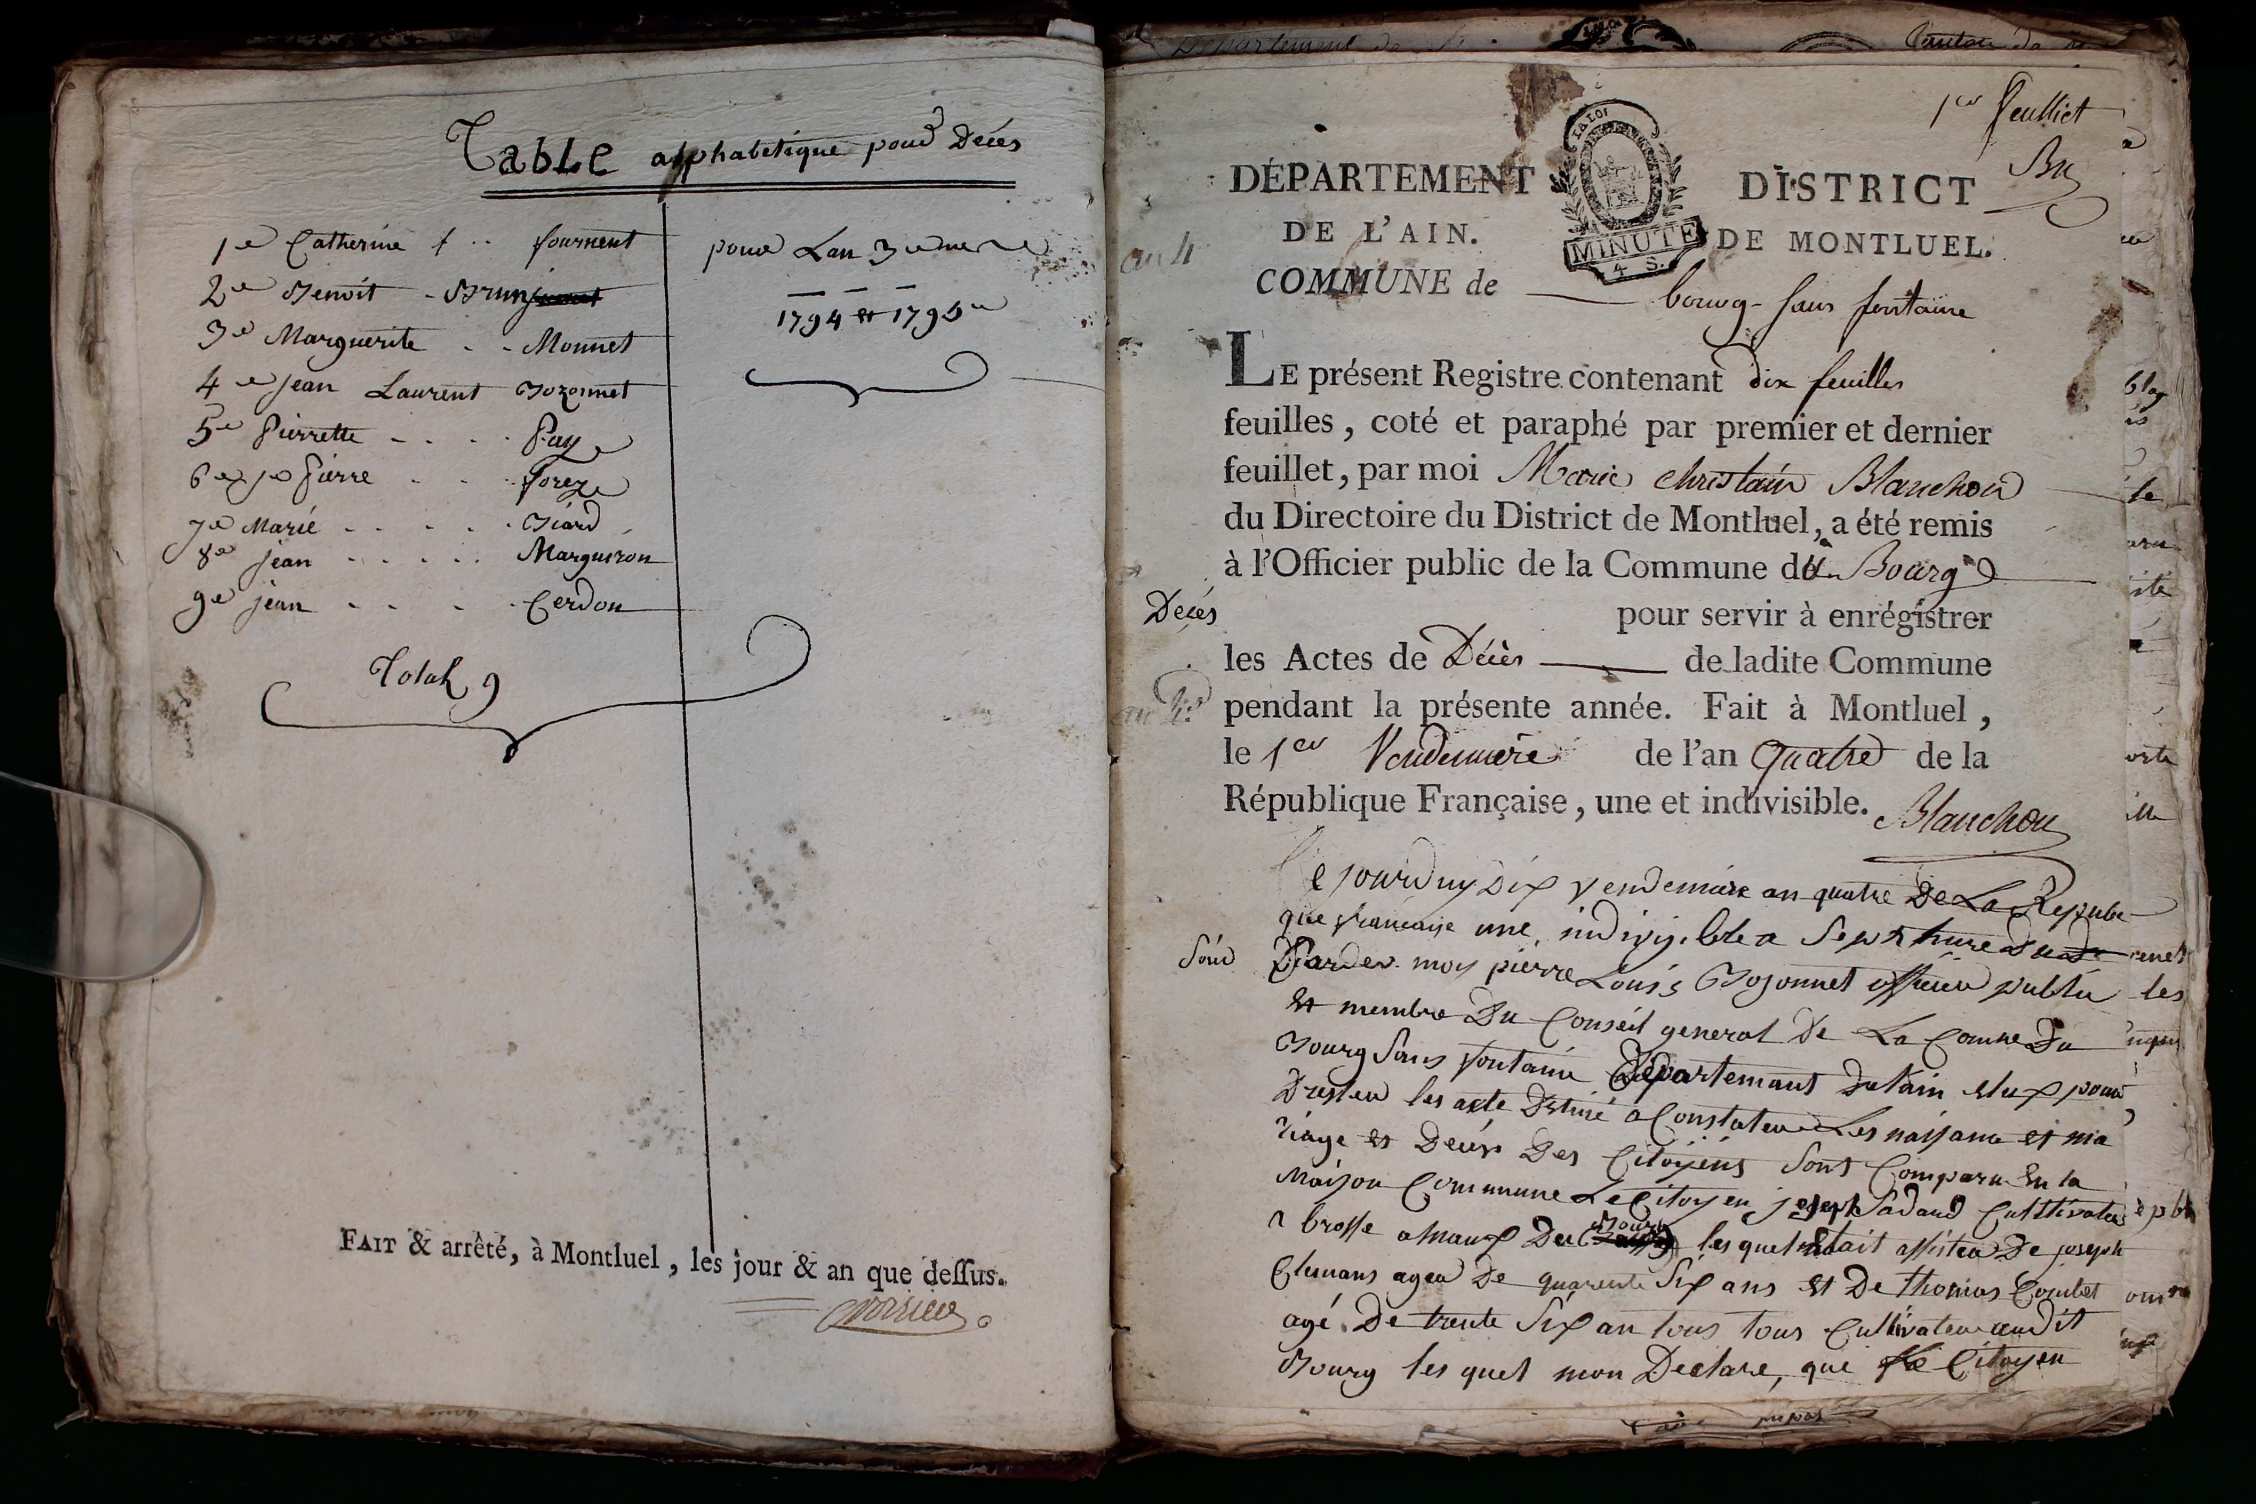 Table alphabetique pour Décés
1e Catherine f .. fournent
2e Benoit - Brun
3e Marguerite . . Monnet
4e jean Laurent Bozonnet
5e Pierrette - . . . Pay
6e Pierre . . . forez
7e Marie - . . . . Biard
8e jean . . . . . Marguiron
9e jean . . . . Cerdon
Total 9
pour Lan 3eme
1794 et 1795
FAIT & arrêté, à Montluel, les jour & an que dessus.
1er feulliet
LA LOI
MINUTE
4 S.
DÉPARTEMENT
DE L'AIN.
DISTRICT
DE MONTLUEL.
an 4
COMMUNE de bourg-sans fontaine
LE présent Registre contenant dix feuilles
feuilles, coté et paraphé par premier et dernier
feuillet, par moi Marie Christain Blanchon
du Directoire du District de Montluel, a été remis
à l'Officier public de la Commune du Bourg
Décés
pour servir à enrégistrer
les Actes de Décès de ladite Commune
pendant la présente année. Fait à Montluel,
le 1er Vendemiere de l'an quatre de la
République Française, une et indivisible.
Blanchon
Ce jourduy Dix vendemiere an quatre De La Republi
que francaise une, indivisible a sept hure du
Pardev. moy pierre Louis Bozonnet officier public
et membre Du Conseil general De La Comne Du
Bourg Sans fontaine Departemant Delain elux pour
Dresser les acte Detiné a Constater Les naissance et ma
riage et Decés Des Citoyens Sont Comparu En la
Maison Commune Le Citoyen joseph Cultivateur
a brosse Du Bourg les quel Etait assister De joseph
agea De quarente Six ans et De thomas
agé De trente Six an tous tous Cultivateur audit
Bourg les quel mon Declare, que Le Citoyen